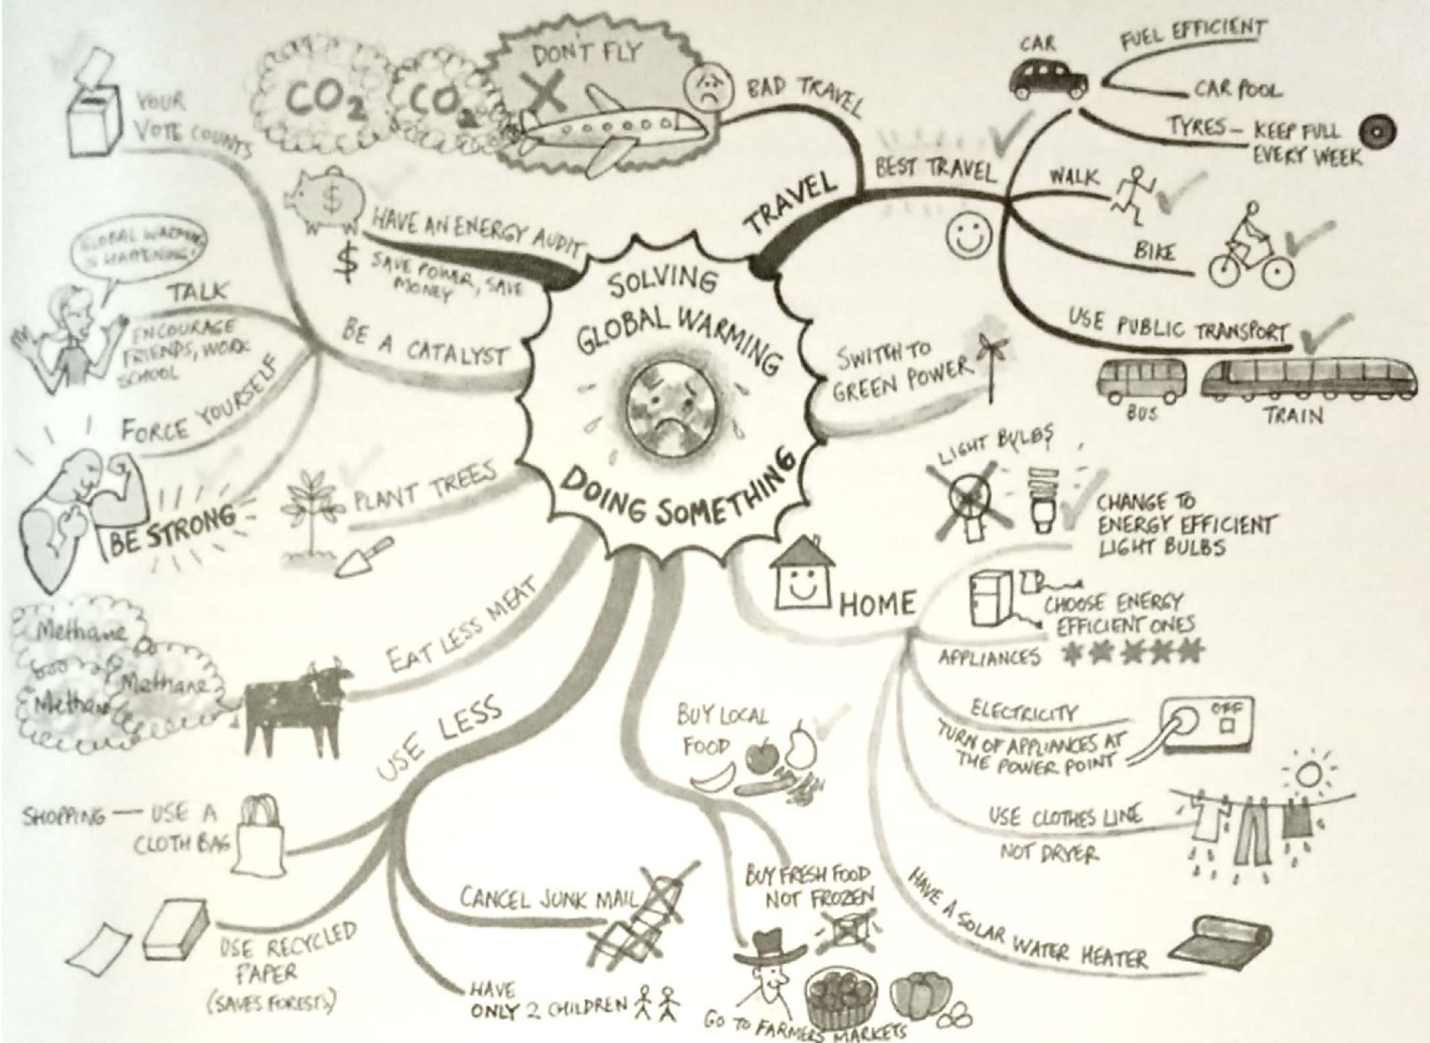 SOLVING
GLOBAL WARMING
DOING SOMETHING
TRAVEL
BAD TRAVEL
DON'T FLY
CO2
CO2
BEST TRAVEL
CAR
FUEL EFFICIENT
CAR POOL
TYRES — KEEP FULL
EVERY WEEK
WALK
BIKE
USE PUBLIC TRANSPORT
BUS
TRAIN
SWITCH TO
GREEN POWER
HOME
LIGHT BULBS
CHANGE TO
ENERGY EFFICIENT
LIGHT BULBS
CHOOSE ENERGY
EFFICIENT ONES
APPLIANCES
ELECTRICITY
TURN OF APPLIANCES AT
THE POWER POINT
OFF
USE CLOTHES LINE
NOT DRYER
HAVE A SOLAR WATER HEATER
BUY LOCAL
FOOD
BUY FRESH FOOD
NOT FROZEN
GO TO FARMERS MARKETS
USE LESS
SHOPPING — USE A
CLOTH BAG
USE RECYCLED
PAPER
(SAVES FORESTS)
CANCEL JUNK MAIL
HAVE
ONLY 2 CHILDREN
EAT LESS MEAT
Methane
Methane
Methan
PLANT TREES
BE A CATALYST
YOUR
VOTE COUNTS
GLOBAL WARMING
IS HAPPENING!
TALK
ENCOURAGE
FRIENDS, WORK
SCHOOL
FORCE YOURSELF
BE STRONG
HAVE AN ENERGY AUDIT
$
$
SAVE POWER, SAVE
MONEY